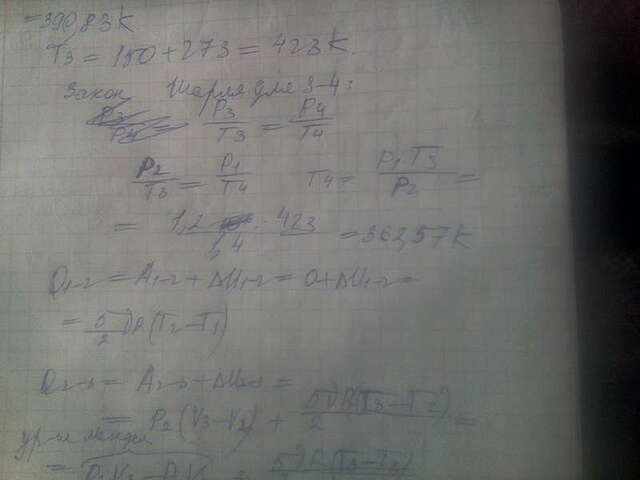 =390,83К
T₃ = 150 + 273 = 423 К.
Закон Шарля для 3-4:
P₃/T₃ = P₄/T₄
P₂/T₃ = P₁/T₄ T₄ = P₁T₃/P₂ =
= 1,2 · 423/1,4 = 362,57 К
Q₁₋₂ = A₁₋₂ + ΔU₁₋₂ = 0 + ΔU₁₋₂ =
= 5/2 νR(T₂ - T₁)
Q₂₋₃ = A₂₋₃ + ΔU₂₋₃ =
= P₂(V₃ - V₂) + 5νR(T₃ - T₂)/2 =
ур-е